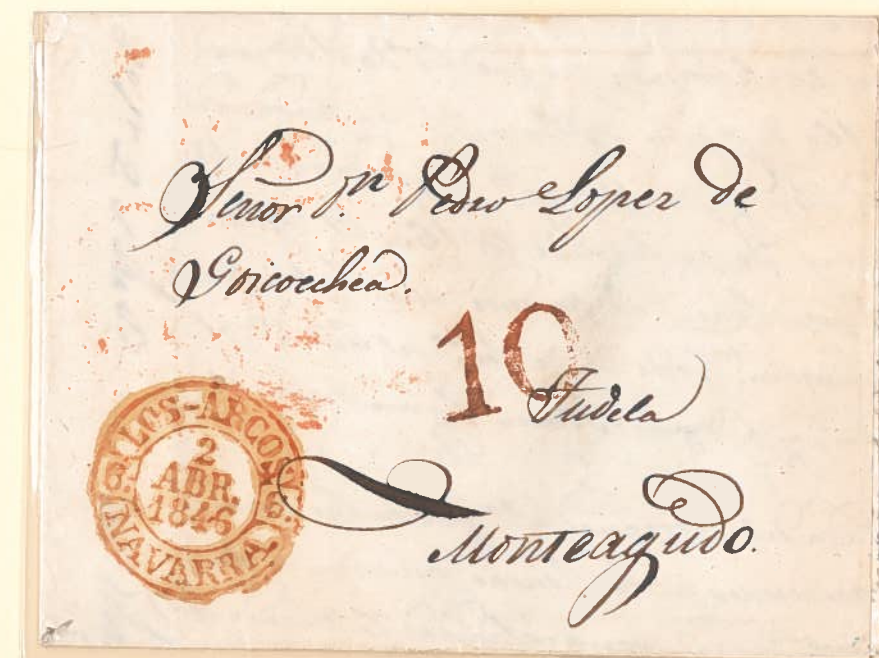 Señor Dn. Pedro Lopez de
Goicoechea.
10
Tudela
LOS-ARCOS
2
ABR.
1846
NAVARRA
Monteagudo.